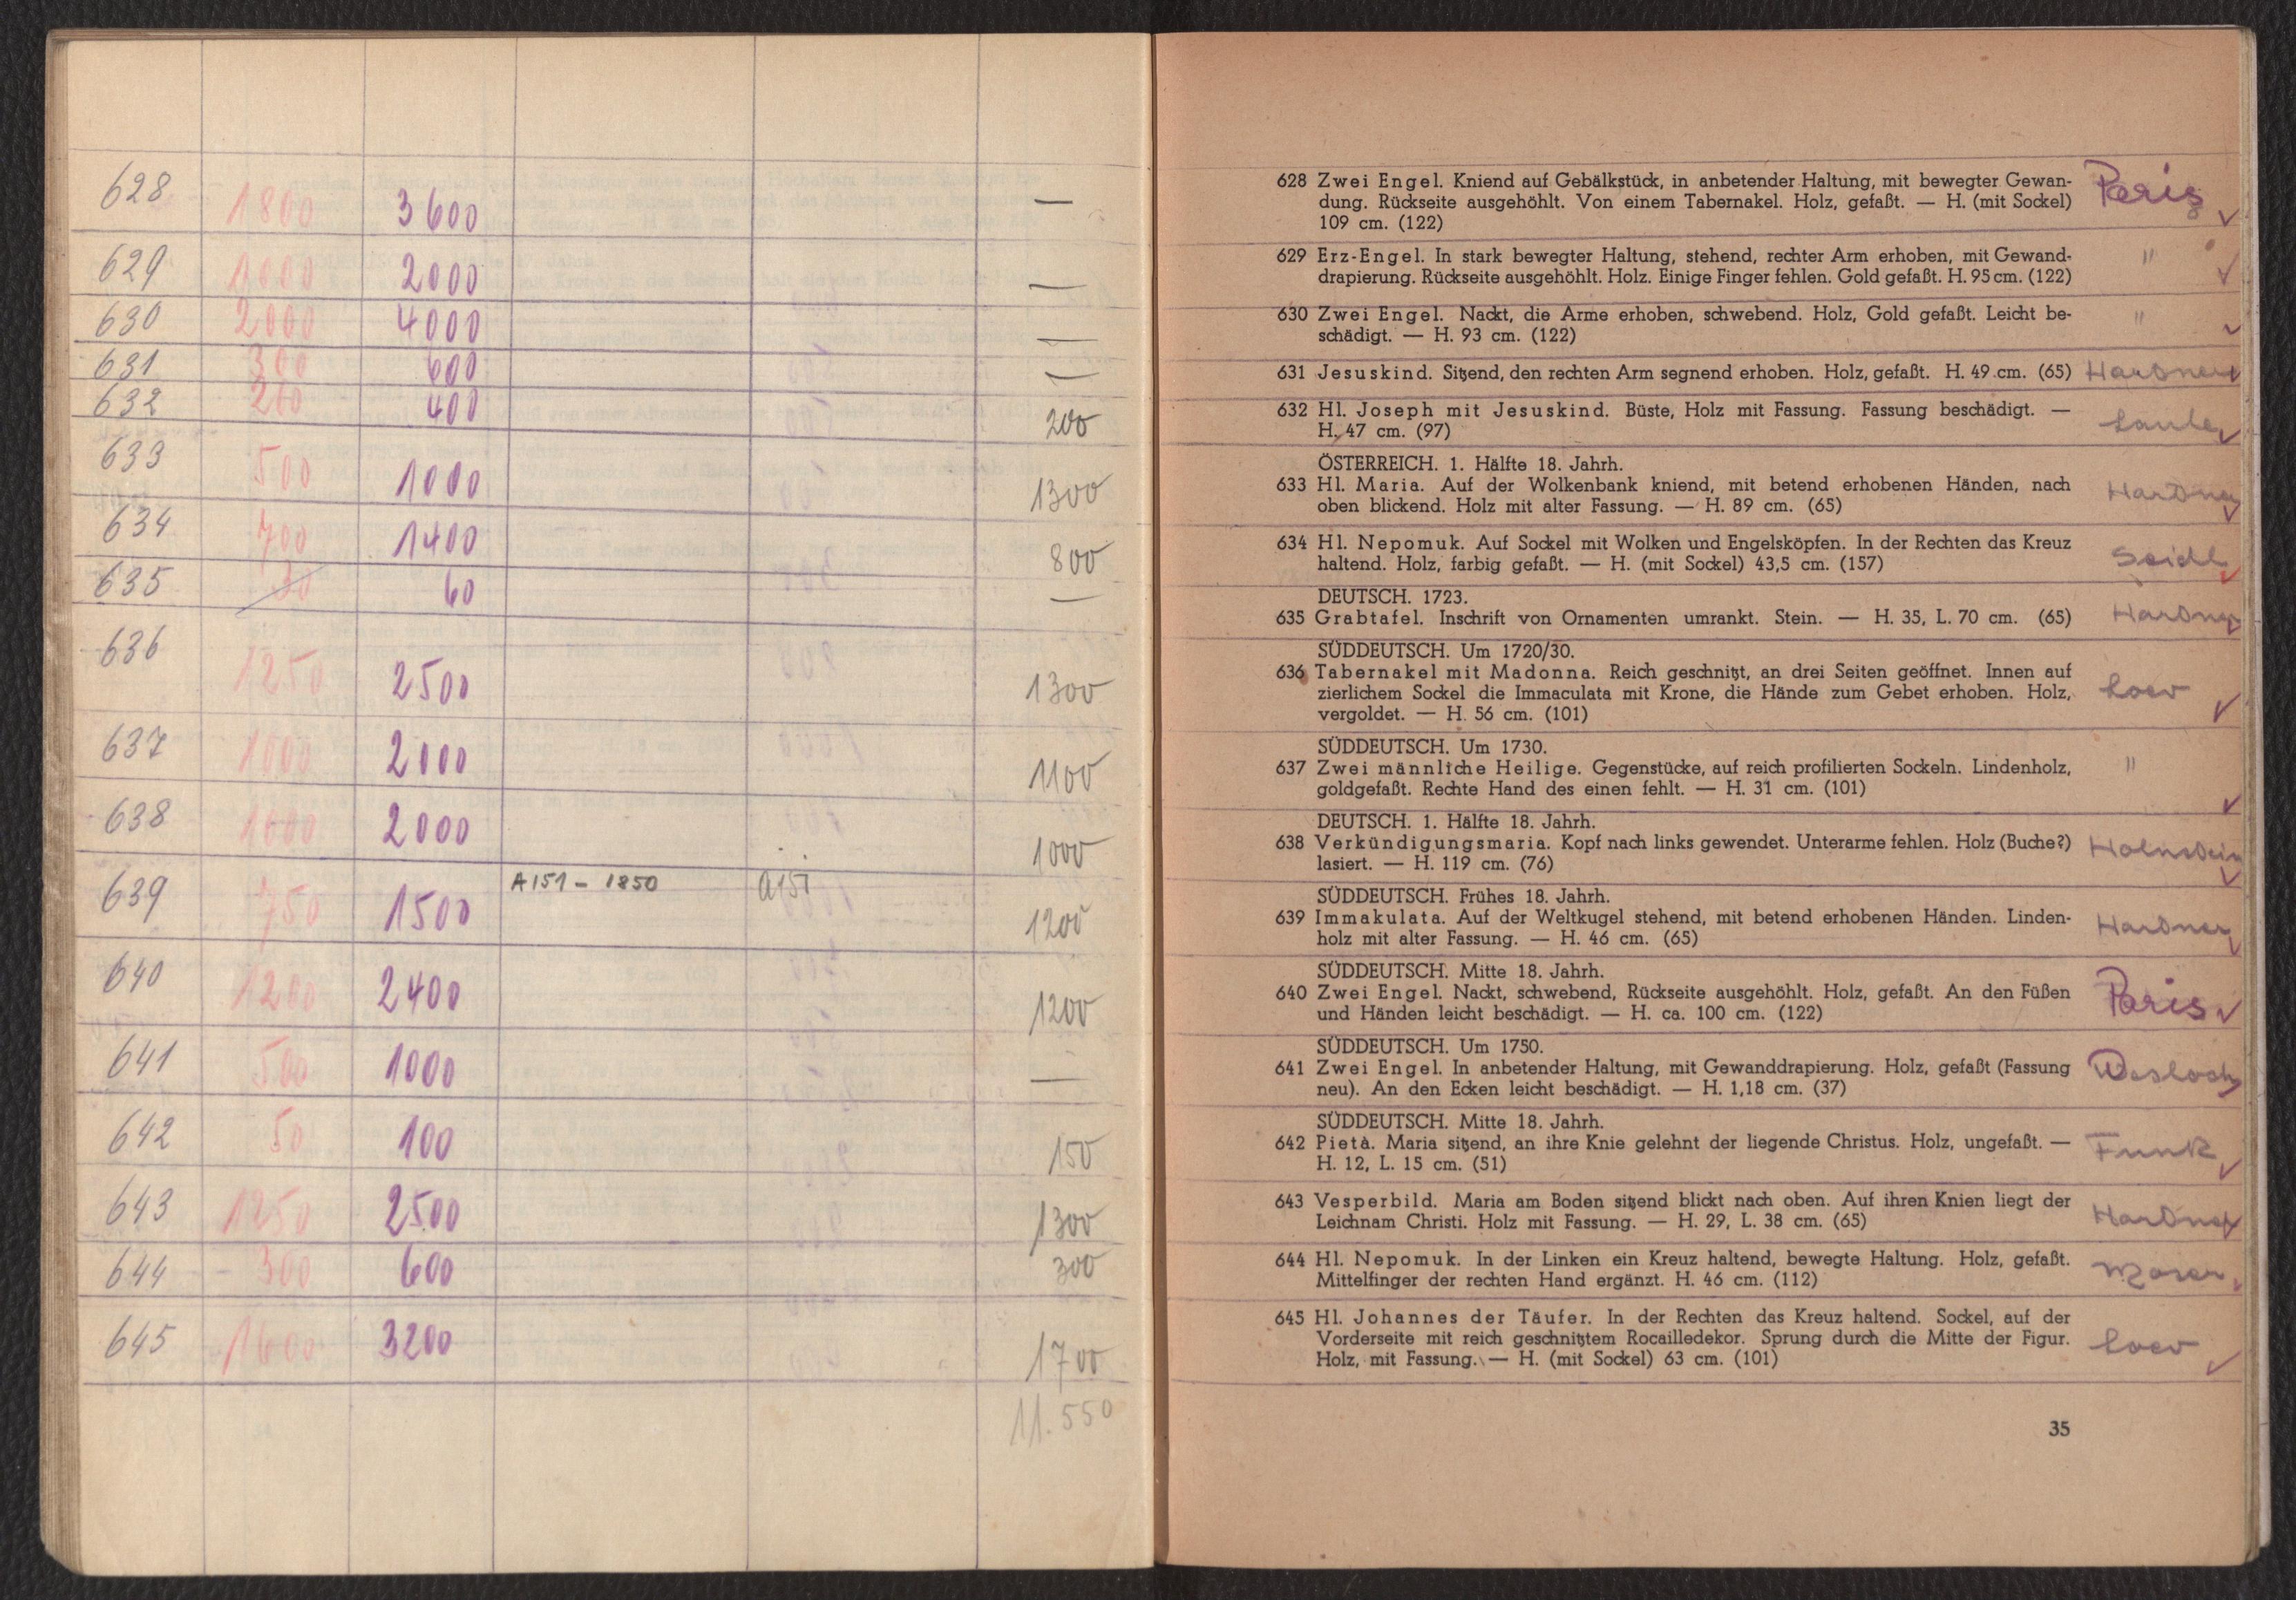 628 1800 3600 —
629 1000 2000 —
630 2000 4000 —
631 300 600 —
632 200 400 200
633 500 1000 1300
634 700 1400 800
635 30 60 —
636 1250 2500 1300
637 1000 2000 1100
638 1000 2000 1000
639 750 1500 A151 – 1850 a151 1200
640 1200 2400 1200
641 500 1000 —
642 50 100 150
643 1250 2500 1300
644 300 600 300
645 1600 3200 1700
11.550
628 Zwei Engel. Kniend auf Gebälkstück, in anbetender Haltung, mit bewegter Gewan- Paris ✓
dung. Rückseite ausgehöhlt. Von einem Tabernakel. Holz, gefaßt. — H. (mit Sockel)
109 cm. (122)
629 Erz-Engel. In stark bewegter Haltung, stehend, rechter Arm erhoben, mit Gewand- " ✓
drapierung. Rückseite ausgehöhlt. Holz. Einige Finger fehlen. Gold gefaßt. H. 95 cm. (122)
630 Zwei Engel. Nackt, die Arme erhoben, schwebend. Holz, Gold gefaßt. Leicht be- " ✓
schädigt. — H. 93 cm. (122)
631 Jesuskind. Sitzend, den rechten Arm segnend erhoben. Holz, gefaßt. H. 49 cm. (65) Hardner ✓
632 Hl. Joseph mit Jesuskind. Büste, Holz mit Fassung. Fassung beschädigt. — ✓
H. 47 cm. (97)
ÖSTERREICH. 1. Hälfte 18. Jahrh.
633 Hl. Maria. Auf der Wolkenbank kniend, mit betend erhobenen Händen, nach Hardner ✓
oben blickend. Holz mit alter Fassung. — H. 89 cm. (65)
634 Hl. Nepomuk. Auf Sockel mit Wolken und Engelsköpfen. In der Rechten das Kreuz Seidl ✓
haltend. Holz, farbig gefaßt. — H. (mit Sockel) 43,5 cm. (157)
DEUTSCH. 1723.
635 Grabtafel. Inschrift von Ornamenten umrankt. Stein. — H. 35, L. 70 cm. (65) Hardner ✓
SÜDDEUTSCH. Um 1720/30.
636 Tabernakel mit Madonna. Reich geschnitzt, an drei Seiten geöffnet. Innen auf
zierlichem Sockel die Immaculata mit Krone, die Hände zum Gebet erhoben. Holz, Loev ✓
vergoldet. — H. 56 cm. (101)
SÜDDEUTSCH. Um 1730.
637 Zwei männliche Heilige. Gegenstücke, auf reich profilierten Sockeln. Lindenholz, " ✓
goldgefaßt. Rechte Hand des einen fehlt. — H. 31 cm. (101)
DEUTSCH. 1. Hälfte 18. Jahrh.
638 Verkündigungsmaria. Kopf nach links gewendet. Unterarme fehlen. Holz (Buche?) Holnstein ✓
lasiert. — H. 119 cm. (76)
SÜDDEUTSCH. Frühes 18. Jahrh.
639 Immakulata. Auf der Weltkugel stehend, mit betend erhobenen Händen. Linden- Hardner ✓
holz mit alter Fassung. — H. 46 cm. (65)
SÜDDEUTSCH. Mitte 18. Jahrh.
640 Zwei Engel. Nackt, schwebend, Rückseite ausgehöhlt. Holz, gefaßt. An den Füßen Paris ✓
und Händen leicht beschädigt. — H. ca. 100 cm. (122)
SÜDDEUTSCH. Um 1750.
641 Zwei Engel. In anbetender Haltung, mit Gewanddrapierung. Holz, gefaßt (Fassung ✓
neu). An den Ecken leicht beschädigt. — H. 1,18 cm. (37)
SÜDDEUTSCH. Mitte 18. Jahrh.
642 Pietà. Maria sitzend, an ihre Knie gelehnt der liegende Christus. Holz, ungefaßt. — Funk ✓
H. 12, L. 15 cm. (51)
643 Vesperbild. Maria am Boden sitzend blickt nach oben. Auf ihren Knien liegt der Hardner ✓
Leichnam Christi. Holz mit Fassung. — H. 29, L. 38 cm. (65)
644 Hl. Nepomuk. In der Linken ein Kreuz haltend, bewegte Haltung. Holz, gefaßt. Moser ✓
Mittelfinger der rechten Hand ergänzt. H. 46 cm. (112)
645 Hl. Johannes der Täufer. In der Rechten das Kreuz haltend. Sockel, auf der
Vorderseite mit reich geschnitztem Rocailledekor. Sprung durch die Mitte der Figur. Loev ✓
Holz, mit Fassung. — H. (mit Sockel) 63 cm. (101)
35